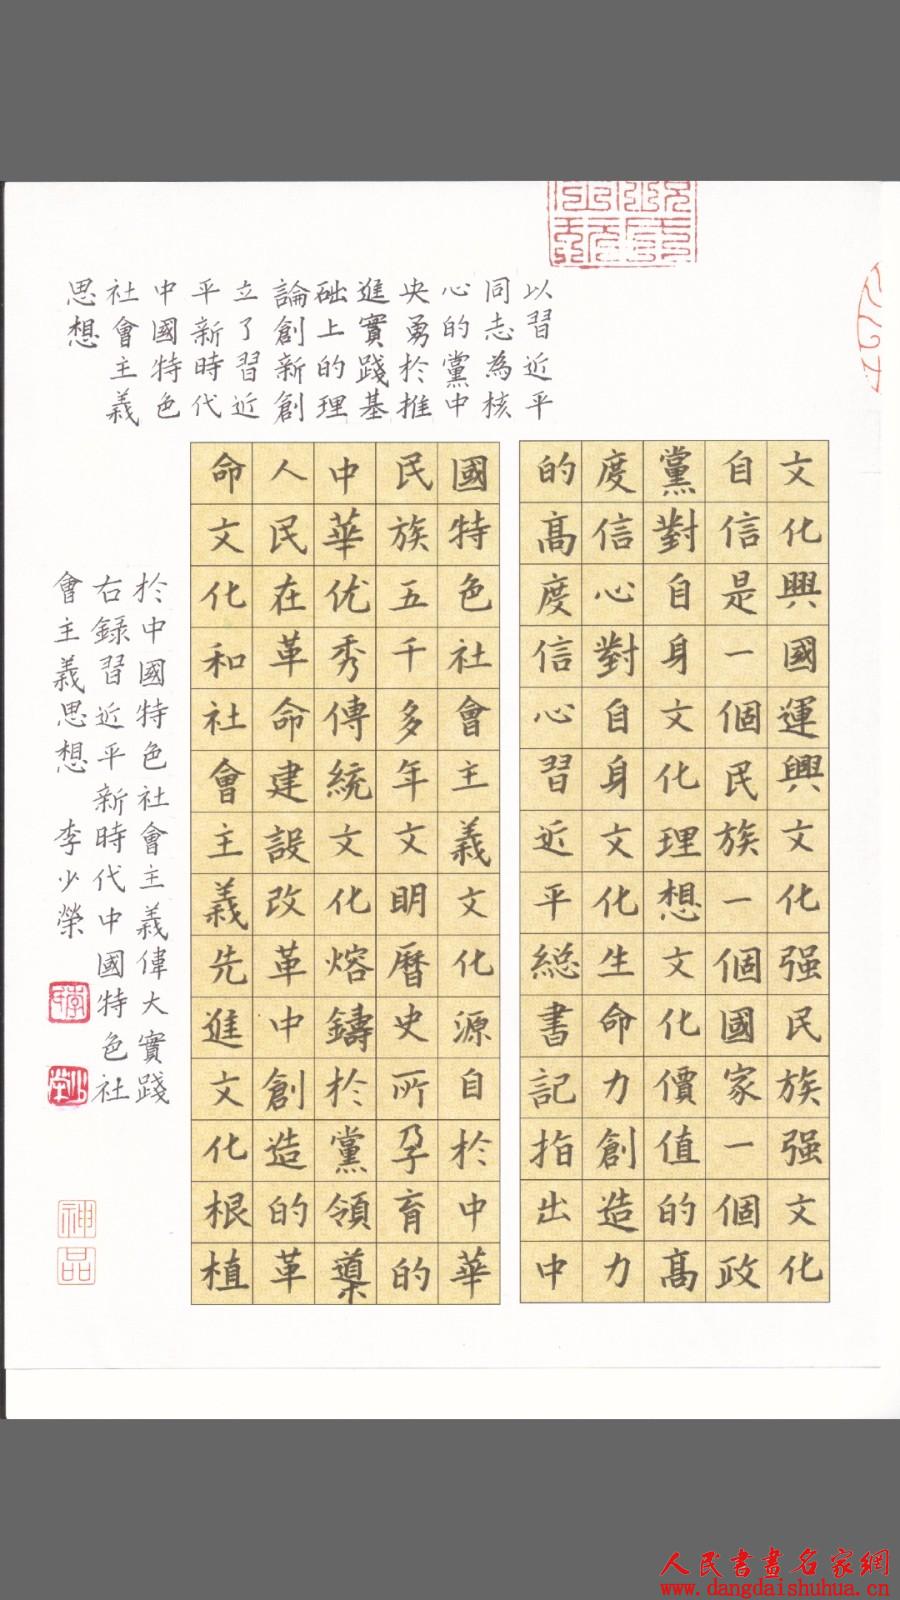 以習近平
同志為核
心的黨中
央勇於推
進實踐基
础上的理
論創新創
立了習近
平新時代
中國特色
社會主義
思想
文化興國運興文化强民族强文化
自信是一個民族一個國家一個政
黨對自身文化理想文化價值的髙
度信心對自身文化生命力創造力
的髙度信心習近平総書記指出中
國特色社會主義文化源自於中華
民族五千多年文明曆史所孕育的
中華优秀傳統文化熔鑄於黨領導
人民在革命建設改革中創造的革
命文化和社會主義先進文化根植
於中國特色社會主義偉大實踐
右録習近平新時代中國特色社
會主義思想 李少榮
神品
人民書畫名家網
www.dangdaishuhua.cn